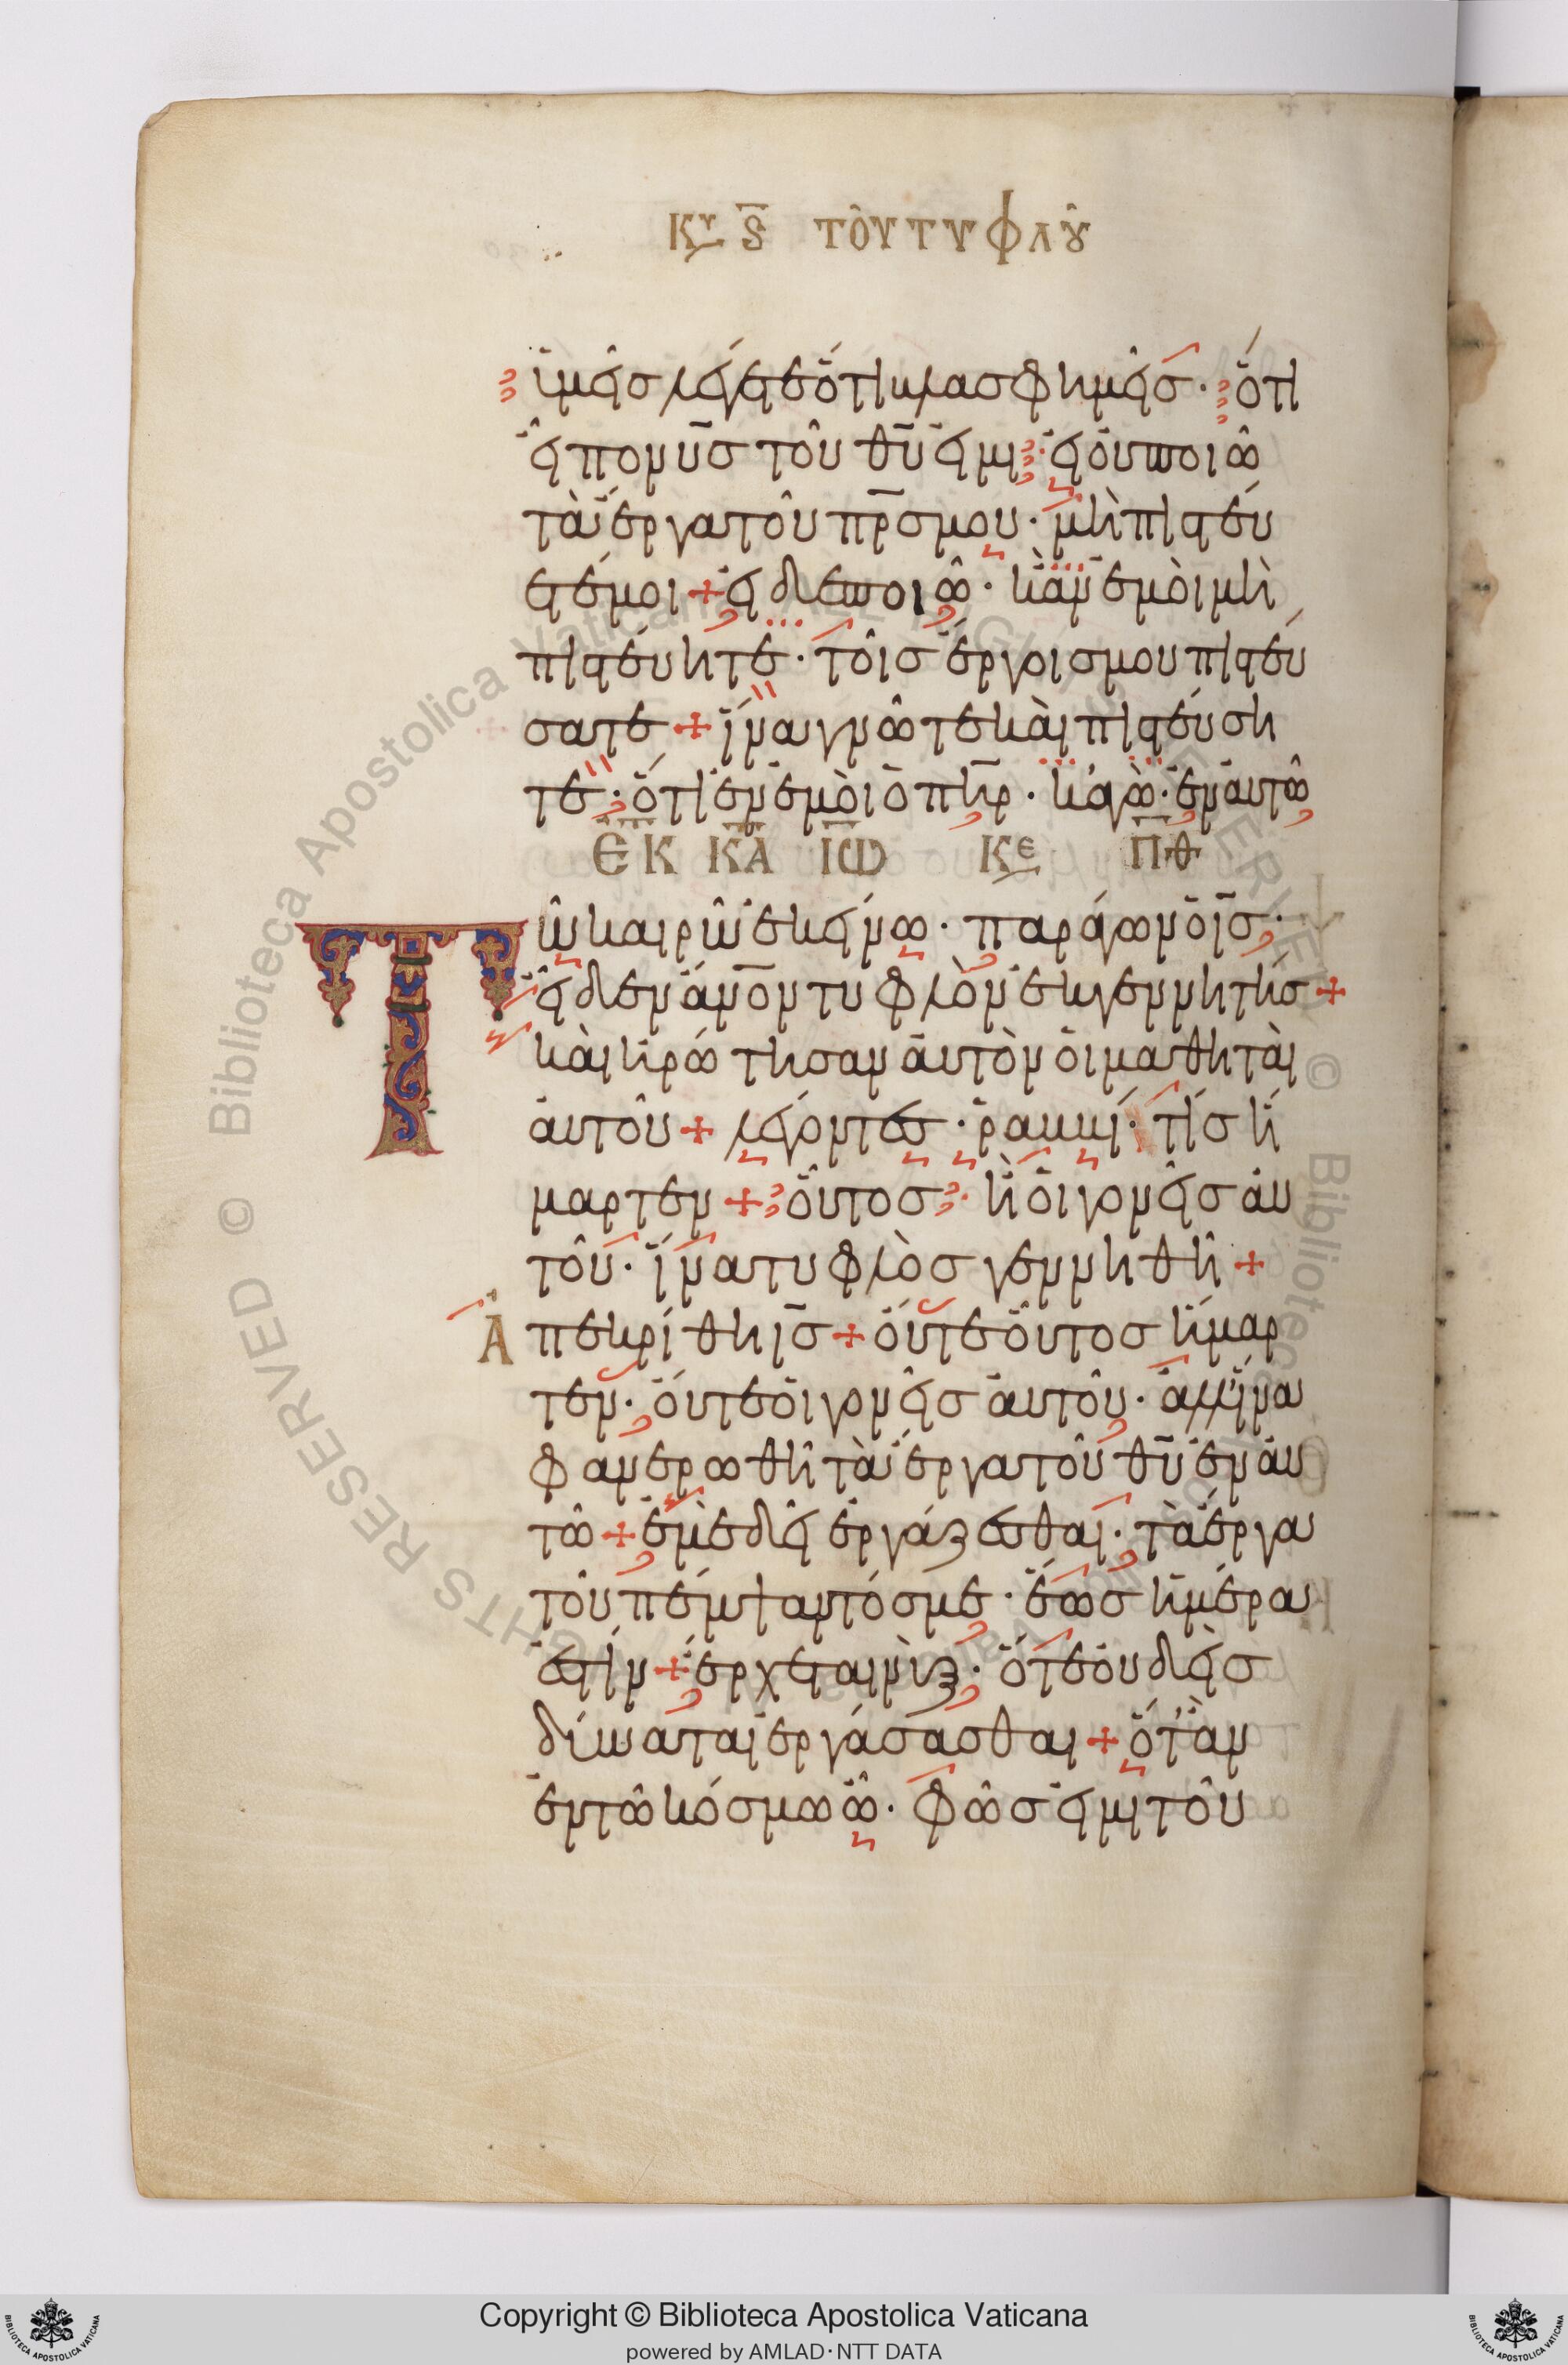 Κυ ϛ̅ τοῦ τυφλοῦ
ϊμεῖς λέγετε ὅτι βλασφημεῖς· ὅτι
εἶπον υ̅ς τοῦ θ̅υ εἰμι· εἰ οὐ ποιῶ
τὰ ἔργα τοῦ π̅ρς μου· μὴ πιστεύ
ετέ μοι + εἰ δὲ ποιῶ· κἂν ἐμοὶ μὴ
πιστεύητε· τοῖς ἔργοις μου πιστεύ
σατε + ἵνα γνῶτε καὶ πιστεύση
τε· ὅτι ἐν ἐμοὶ ὁ π̅ηρ· κἀγὼ· ἐν αὐτῶ
Ἐκ κα Ἰω Κε π̅θ
Τῶ καιρῶ ἐκείνω· παράγων ὁ ι̅ς·
εἶδεν α̅νον τυφλὸν ἐκ γεννητῆς +
καὶ ἠρώτησαν αὐτὸν οἱ μαθηταὶ
αὐτοῦ + λέγοντες· ῥαββί· τίς ἥ
μαρτεν + οὗτος· ἢ οἱ γονεῖς αὐ
τοῦ· ἵνα τυφλὸς γεννηθῆ +
Ἀπεκρίθη ι̅ς + οὔτε οὗτος ἥμαρ
τεν· οὔτε οἱ γονεῖς αὐτοῦ· ἀλλ' ἵνα
φανερωθῆ τὰ ἔργα τοῦ θ̅υ ἐν αὐ
τῶ + ἐμὲ δεῖ ἐργάζεσθαι· τὰ ἔργα
τοῦ πέμψαντός με· ἕως ἡμέρα
ἐστίν + ἔρχεται νὺξ· ὅτε οὐδεὶς
δύναται ἐργάσασθαι + ὅτ' ἂν
ἐν τῶ κόσμω ὦ· φῶς εἰμι τοῦ
Copyright © Biblioteca Apostolica Vaticana
powered by AMLAD·NTT DATA